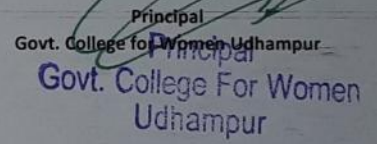 Principal
Govt. College for Women Udhampur
Principal
Govt. College For Women
Udhampur